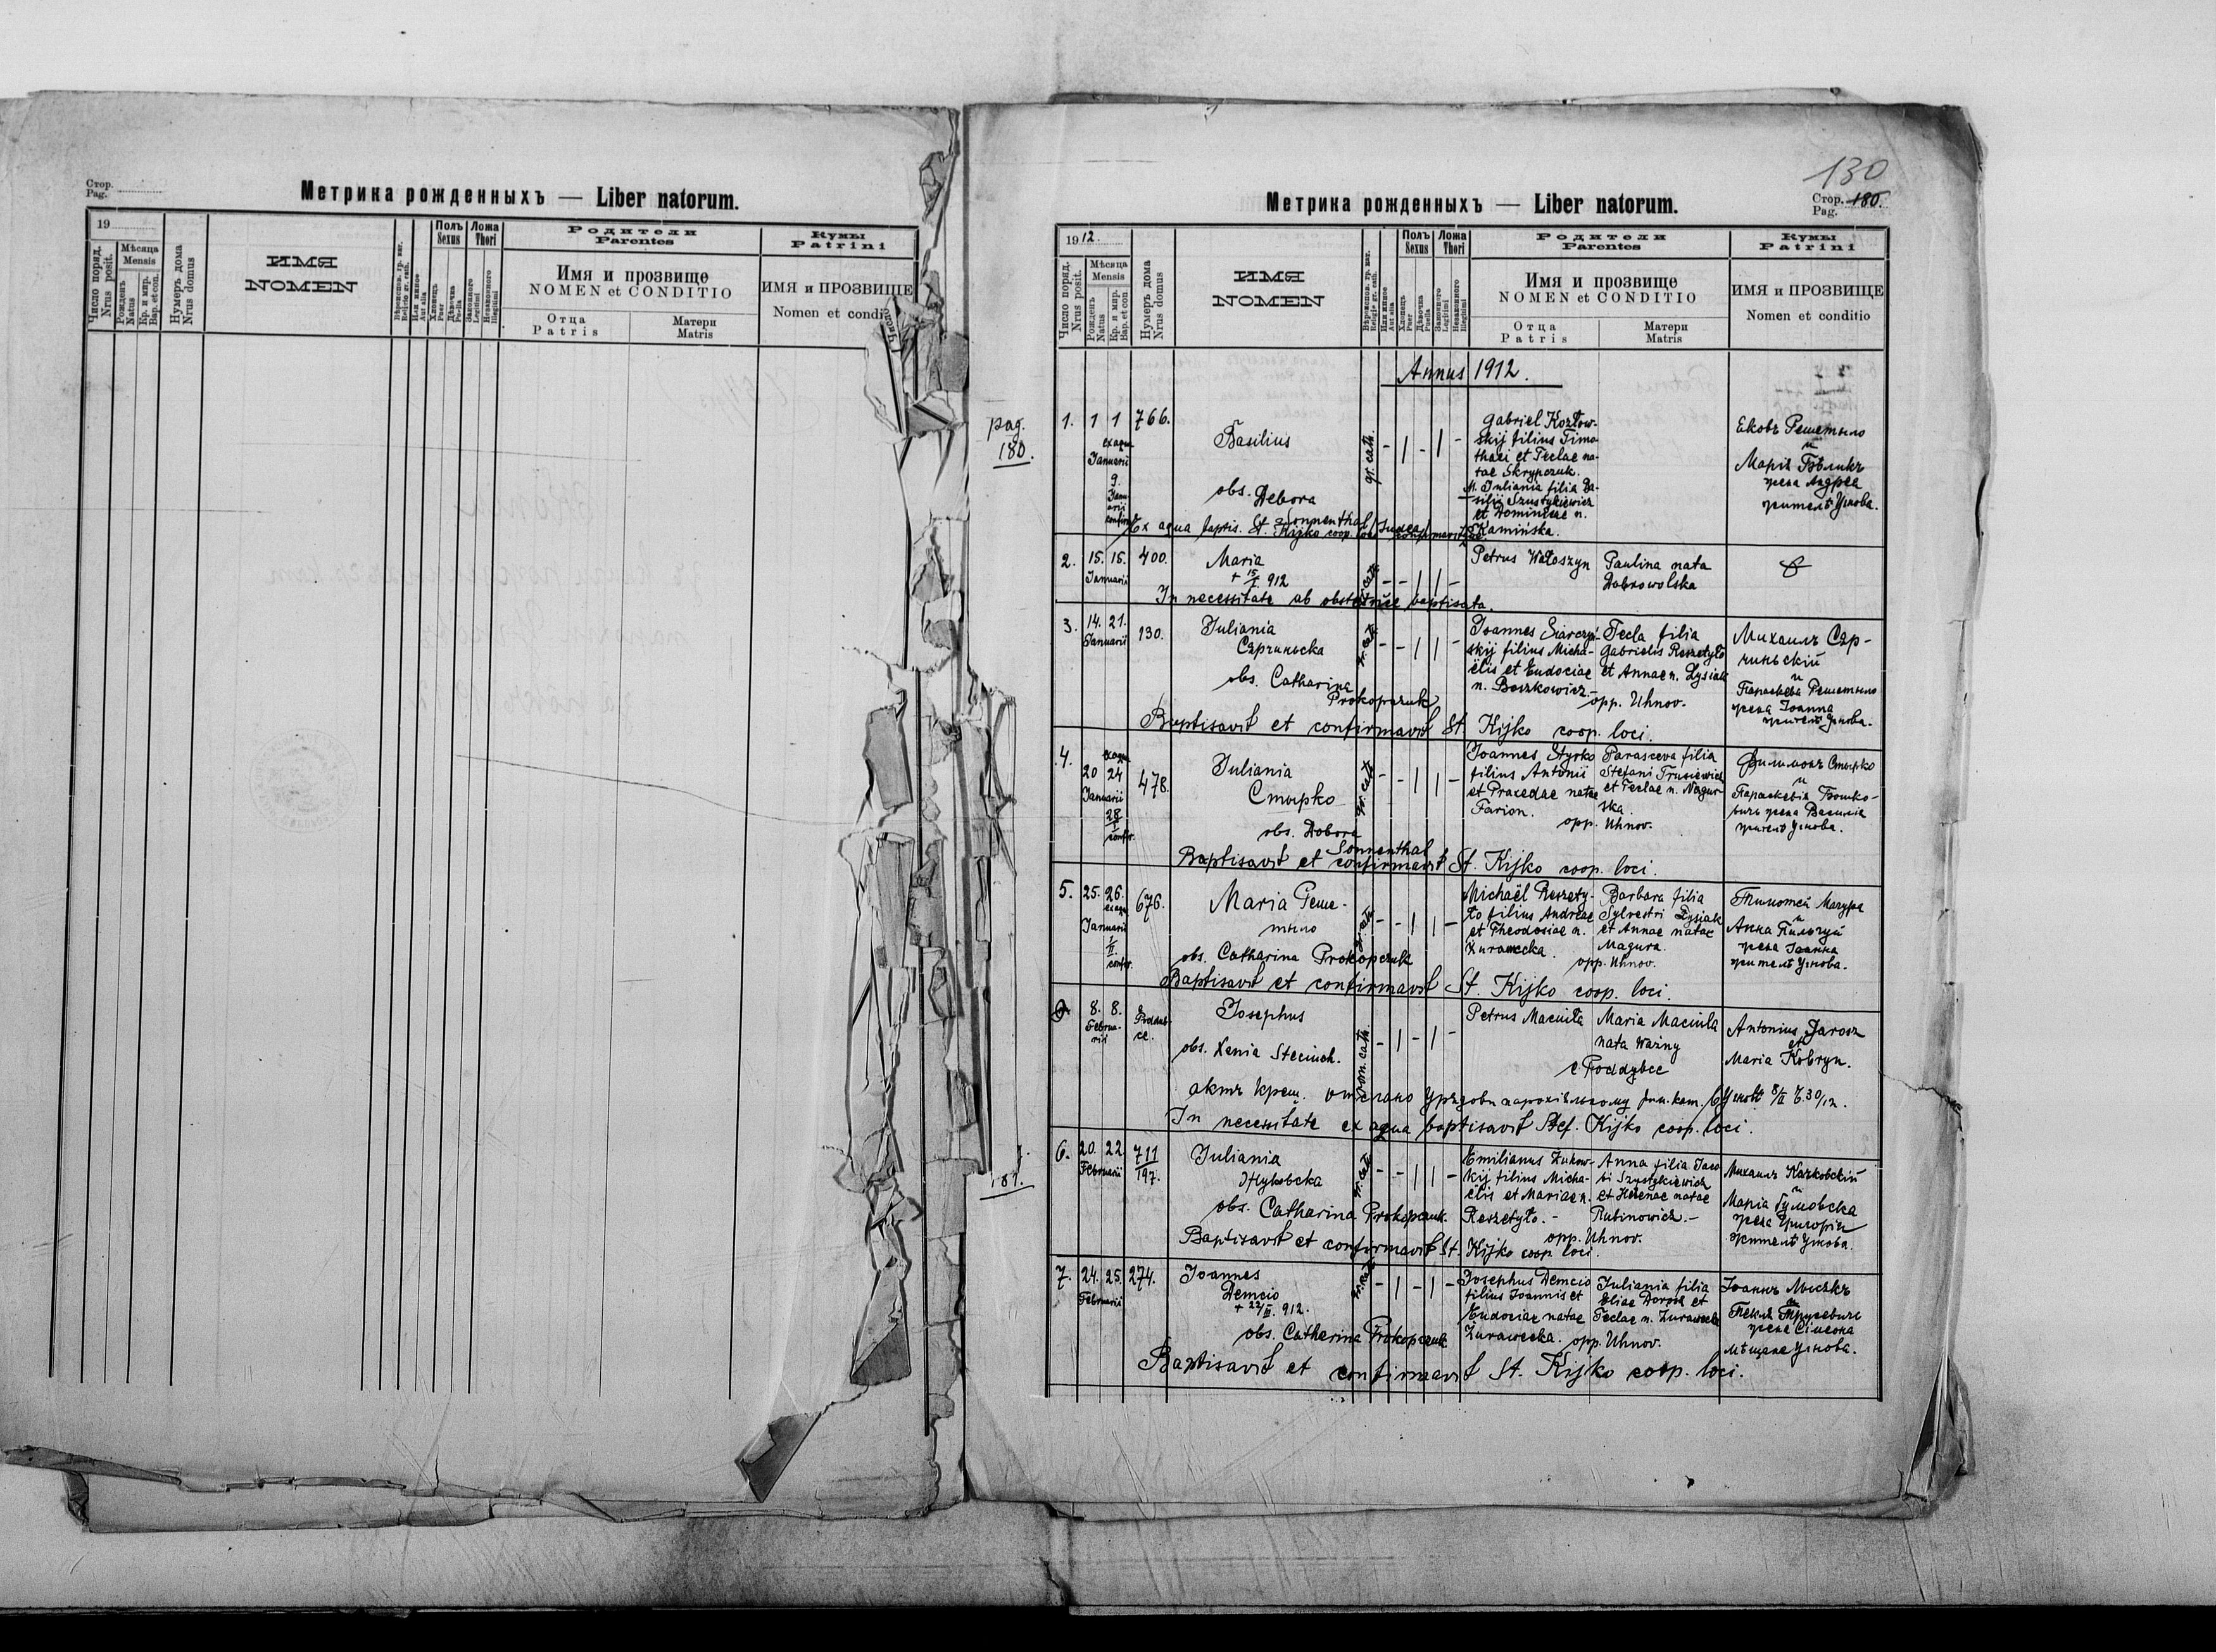 Стор.
Pag.
Метрика рожденныхъ — Liber natorum.
19
Число поряд.
Nrus posit.
Мѣсяца
Mensis
Рожденъ
Natus
Кр. и мир.
Bap. et con.
Нумеръ дома
Nrus domus
ИМЯ
NOMEN
Вѣроиспов. гр. кат.
Religio gr. cath.
Или инное
Aut alia
Полъ
Sexus
Хлопець
Puer
Дѣвочка
Puella
Ложа
Thori
Законного
Legitimi
Незаконного
Illegitimi
Родители
Parentes
Имя и прозвище
NOMEN et CONDITIO
Отца
Patris
Матери
Matris
Кумы
Patrini
ИМЯ и ПРОЗВИЩЕ
Nomen et condit
Число
pag.
180.
181.
130
Стор. 180.
Pag.
Метрика рожденныхъ — Liber natorum.
1912.
Число поряд.
Nrus posit.
Мѣсяца
Mensis
Рожденъ
Natus
Кр. и мир.
Bap. et con
Нумеръ дома
Nrus domus
ИМЯ
NOMEN
Вѣроиспов. гр. кат.
Religio gr. cath.
Или инное
Aut alia
Полъ
Sexus
Хлопець
Puer
Дѣвочка
Puella
Ложа
Thori
Законного
Legitimi
Незаконного
Illegitimi
Родители
Parentes
Имя и прозвище
NOMEN et CONDITIO
Отца
Patris
Матери
Matris
Кумы
Patrini
ИМЯ и ПРОЗВИЩЕ
Nomen et conditio
Annus 1912.
1. 1 1 766.
ex aqua
Januarii
9.
Januarii
confir.
Basilius
obs. Debora
Sonnenthal
gr. cath. - 1 - 1 -
Gabriel Kozłow-
skij filius Timo-
thaei et Teclae na-
tae Skrypczuk.
M. Juliania filia Ba-
silii Szustykiewicz
et Dominicae n.
Kamińska.
Яковъ Решетыло
и
Марія Бѣликъ
жена Андрея
жителѣ Угнова.
Ex aqua baptis. St. Kijko coop. loci
2. 15. 15. 400.
Januarii
Maria
+ 15/I 912
gr. cath. - - 1 1 -
Petrus Wołoszyn
Paulina nata
Dobrowolska
In necessitate ab obstetrice baptisata.
3. 14. 21. 130.
Januarii
Juliania
Сярчиньска
obs. Catharina
Prokopczuk
gr. cath. - - 1 1 -
Joannes Siarczyń-
skij filius Micha-
ëlis et Eudociae
n. Boszkowicz.-
Tecla filia
Gabrielis Reszetyło
et Annae n. Łysiak
opp. Uhnov.
Михаилъ Сяр-
чиньскій
и
Параскева Решетыло
жена Іоанна
жителѣ Угнова.
Baptisavit et confirmavit St. Kijko coop. loci.
4. ex aqua
20 24 478.
Januarii
28
I
confir.
Juliania
Стырко
obs. Dobora
Sonnenthal
gr. cath. - - 1 1 -
Joannes Styrko
filius Antonii
et Praxedae natae
Farion.
Parasceva filia
Stefani Trusiewicz
et Teclae n. Nagur-
ska.
opp. Uhnov.
Филимонъ Стырко
и
Параскевія Бошко-
вичъ жена Василія
жителѣ Угнова.
Baptisavit et confirmavit St. Kijko coop. loci.
5. 25. 26. 676.
ex aqua
Januarii
1/II.
confir.
Maria Реше-
тыло
obs. Catharina Prokopczuk
gr. cath. - - 1 1 -
Michaël Reszety-
ło filius Andreae
et Theodosiae n.
Żurawecka.
Barbara filia
Sylvestri Łysiak
et Annae natae
Magura.
opp. Uhnov.
Тимотей Магура
и
Анна Пильгуй
жена Іоанна
жителѣ Угнова.
Baptisavit et confirmavit St. Kijko coop. loci.
8. 8. Poddub-
ce.
Februa-
rii
Josephus
obs. Xenia Steciuch.
rom. cath. - 1 - 1 -
Petrus Maciuła
Maria Maciuła
nata Ważny
e Poddybce
Antonius Jarosz
et
Maria Kobryn.
актъ крещ. отослано урядови парохіяльному лит. кат. въ Угновѣ 8/II Ч. 30/12.
In necessitate ex aqua baptisavit Stef. Kijko coop. loci.
6. 20. 22. 711
197.
Februarii
Juliania
Жуковска
obs. Catharina Prokopczuk.
gr. cat. - - 1 1 -
Emilianus Żukow-
skij filius Micha-
ëlis et Mariae n.
Reszetyło.-
Anna filia Jaco
bi Szystykiewicz
et Helenae natae
Rubinowicz.-
opp. Uhnov.
Михаилъ Качковскій
и
Марія Гумовска
жена Григорія
жителѣ Угнова.
Baptisavit et confirmavit St. Kijko coop. loci.
7. 24. 25. 274.
Februarii
Joannes
Demcio
+ 22/III. 912.
obs. Catherina Prokopczuk
gr. cat. - 1 - 1 -
Josephus Demcio
filius Joannis et
Eudociae natae
Żurawecka.
Juliania filia
Eliae Dorosz et
Teclae n. Żurawecka
opp. Uhnov.
Іоаннъ Мисякъ
и
Текля Трусевичъ
жена Сімеона
мѣщане Угнова.
Baptisavit et confirmavit St. Kijko coop. loci.